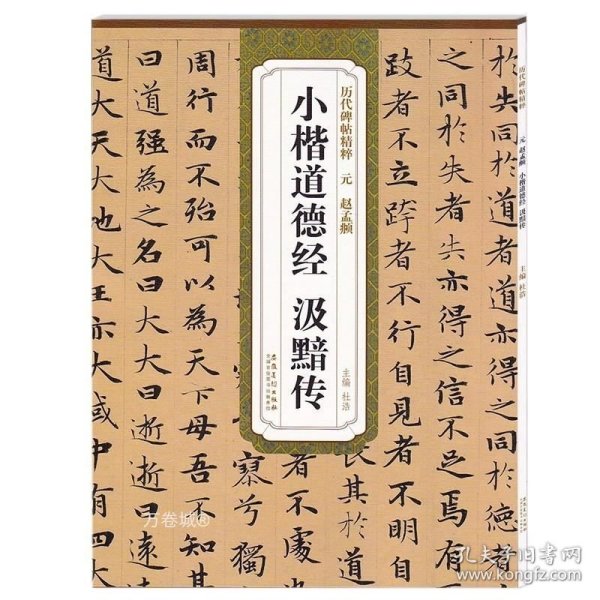 历代碑帖精粹 元 赵孟頫 小楷道德经 汲黯传 主编 杜浩
历代碑帖精粹 元 赵孟頫
小楷道德经 汲黯传
主编 杜浩
安徽美术出版社
全国百佳图书出版单位
於失同於道者道亦得之同於德
之同於失者失亦得之信不足焉有
跂者不立跨者不行自見者不明自
長其於
者不處
寥兮獨
周行而不殆可以為天下母吾不知其
曰道強為之名曰大大曰逝逝曰遠
道大天大地大王亦大域中有四大
万卷城®
孔夫子旧书网
www.kongfz.com